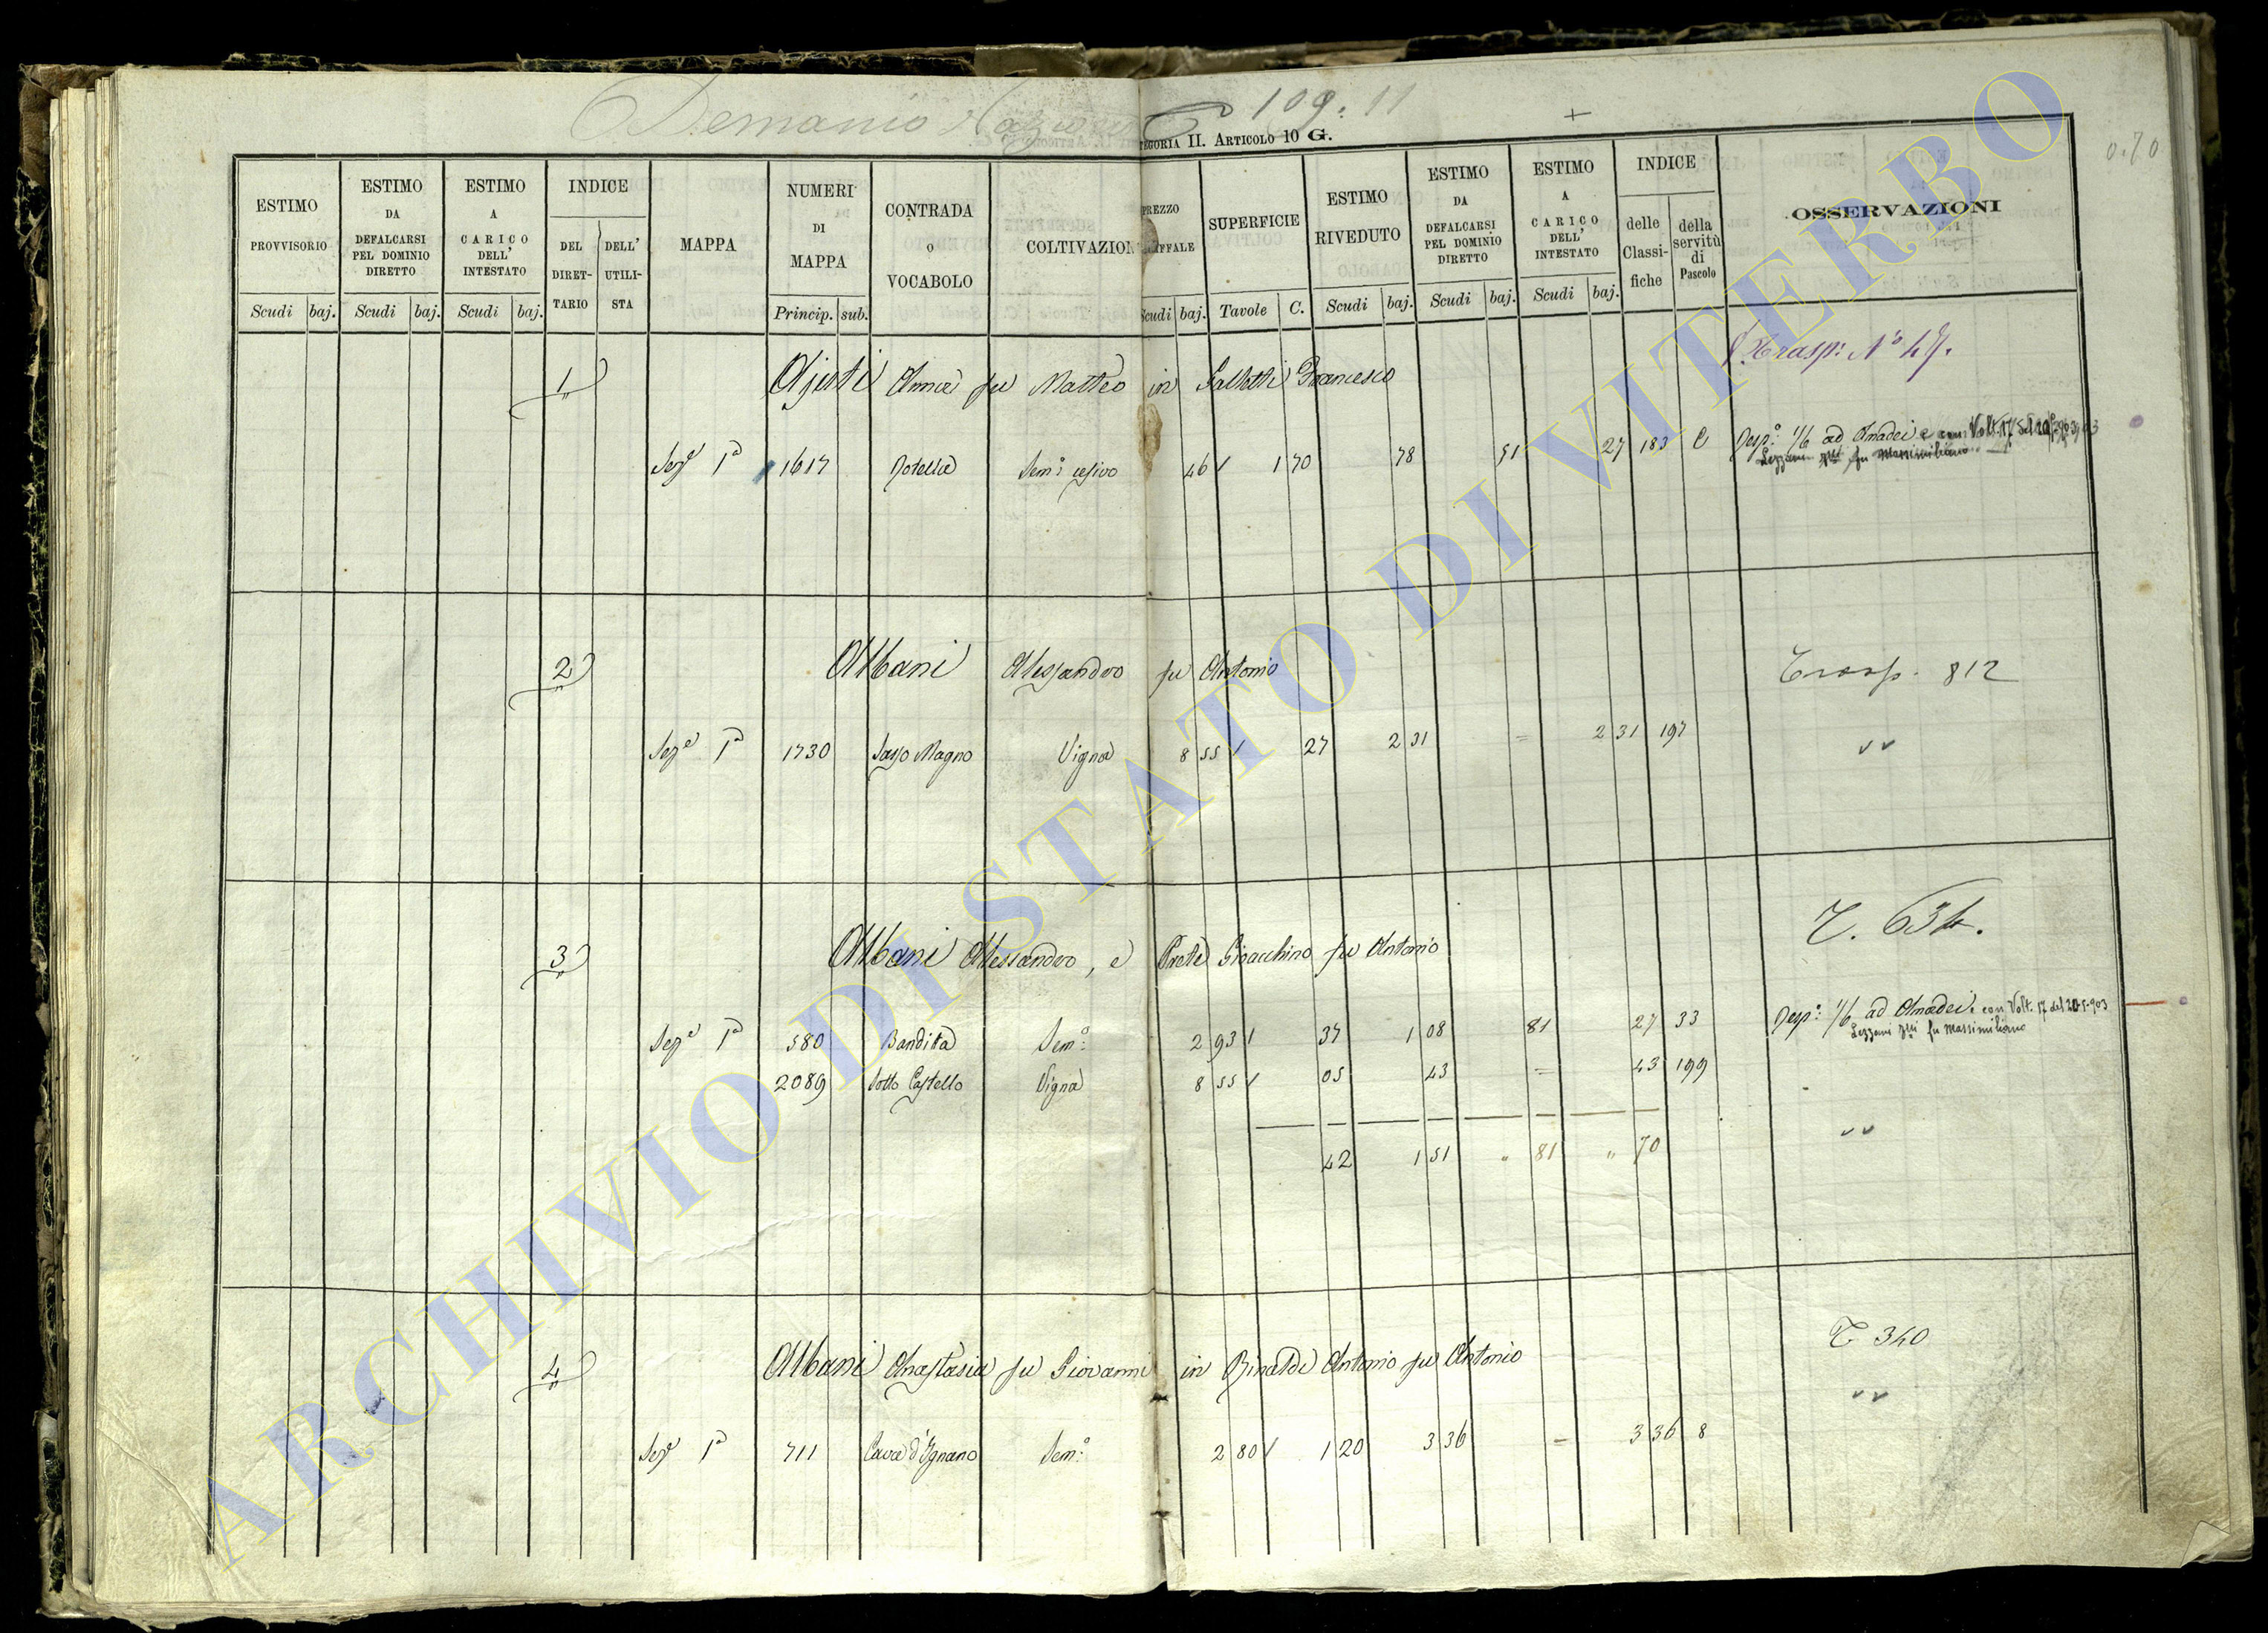 Demanio Nazionale 109:11
+
CATEGORIA II. ARTICOLO 10 G.
0.70
ESTIMO PROVVISORIO Scudi baj.
ESTIMO DA DEFALCARSI PEL DOMINIO DIRETTO Scudi baj.
ESTIMO A CARICO DELL' INTESTATO Scudi baj.
INDICE DEL DIRETTARIO DELL' UTILISTA
MAPPA
NUMERI DI MAPPA Princip. sub.
CONTRADA O VOCABOLO
COLTIVAZIONE
PREZZO Scudi baj.
SUPERFICIE Tavole C.
ESTIMO RIVEDUTO Scudi baj.
ESTIMO DA DEFALCARSI PEL DOMINIO DIRETTO Scudi baj.
ESTIMO A CARICO DELL' INTESTATO Scudi baj.
INDICE delle Classifiche della servitù di Pascolo
OSSERVAZIONI
Trasp: N° 47.
1 Ajusti Anna fu Matteo in Galletti Francesco
Sez.e 1a 1617 Rotella Sem: cesivo 46 1 1 70 78 51 27 183 C Resp: 1/6 ad Amadei
Lezzani fu Massimiliano
2 Albani Alessandro fu Antonio Trasp. 812
Sez.e 1a 1730 Sasso Magno Vigna 8 55 1 27 2 31 = 2 31 197
3 Albani Alessandro, e Prete Gioacchino fu Antonio T. 634.
Sez.e 1a 580 Bandita Sem: 2 93 1 37 1 08 81 27 33 Resp: 1/6 ad Amadei e con Volt. 17 del 20-5-903
Lezzani fu Massimiliano
2089 Sotto Castello Vigna 8 55 1 05 43 = 43 199
42 1 51 " 81 " 70
4 Albani Anastasia fu Giovanni in Rinaldi Antonio fu Antonio T 340
Sez.e 1a 711 Cava d'Ignano Sem: 2 80 1 1 20 3 36 - 3 36 8
ARCHIVIO DI STATO DI VITERBO